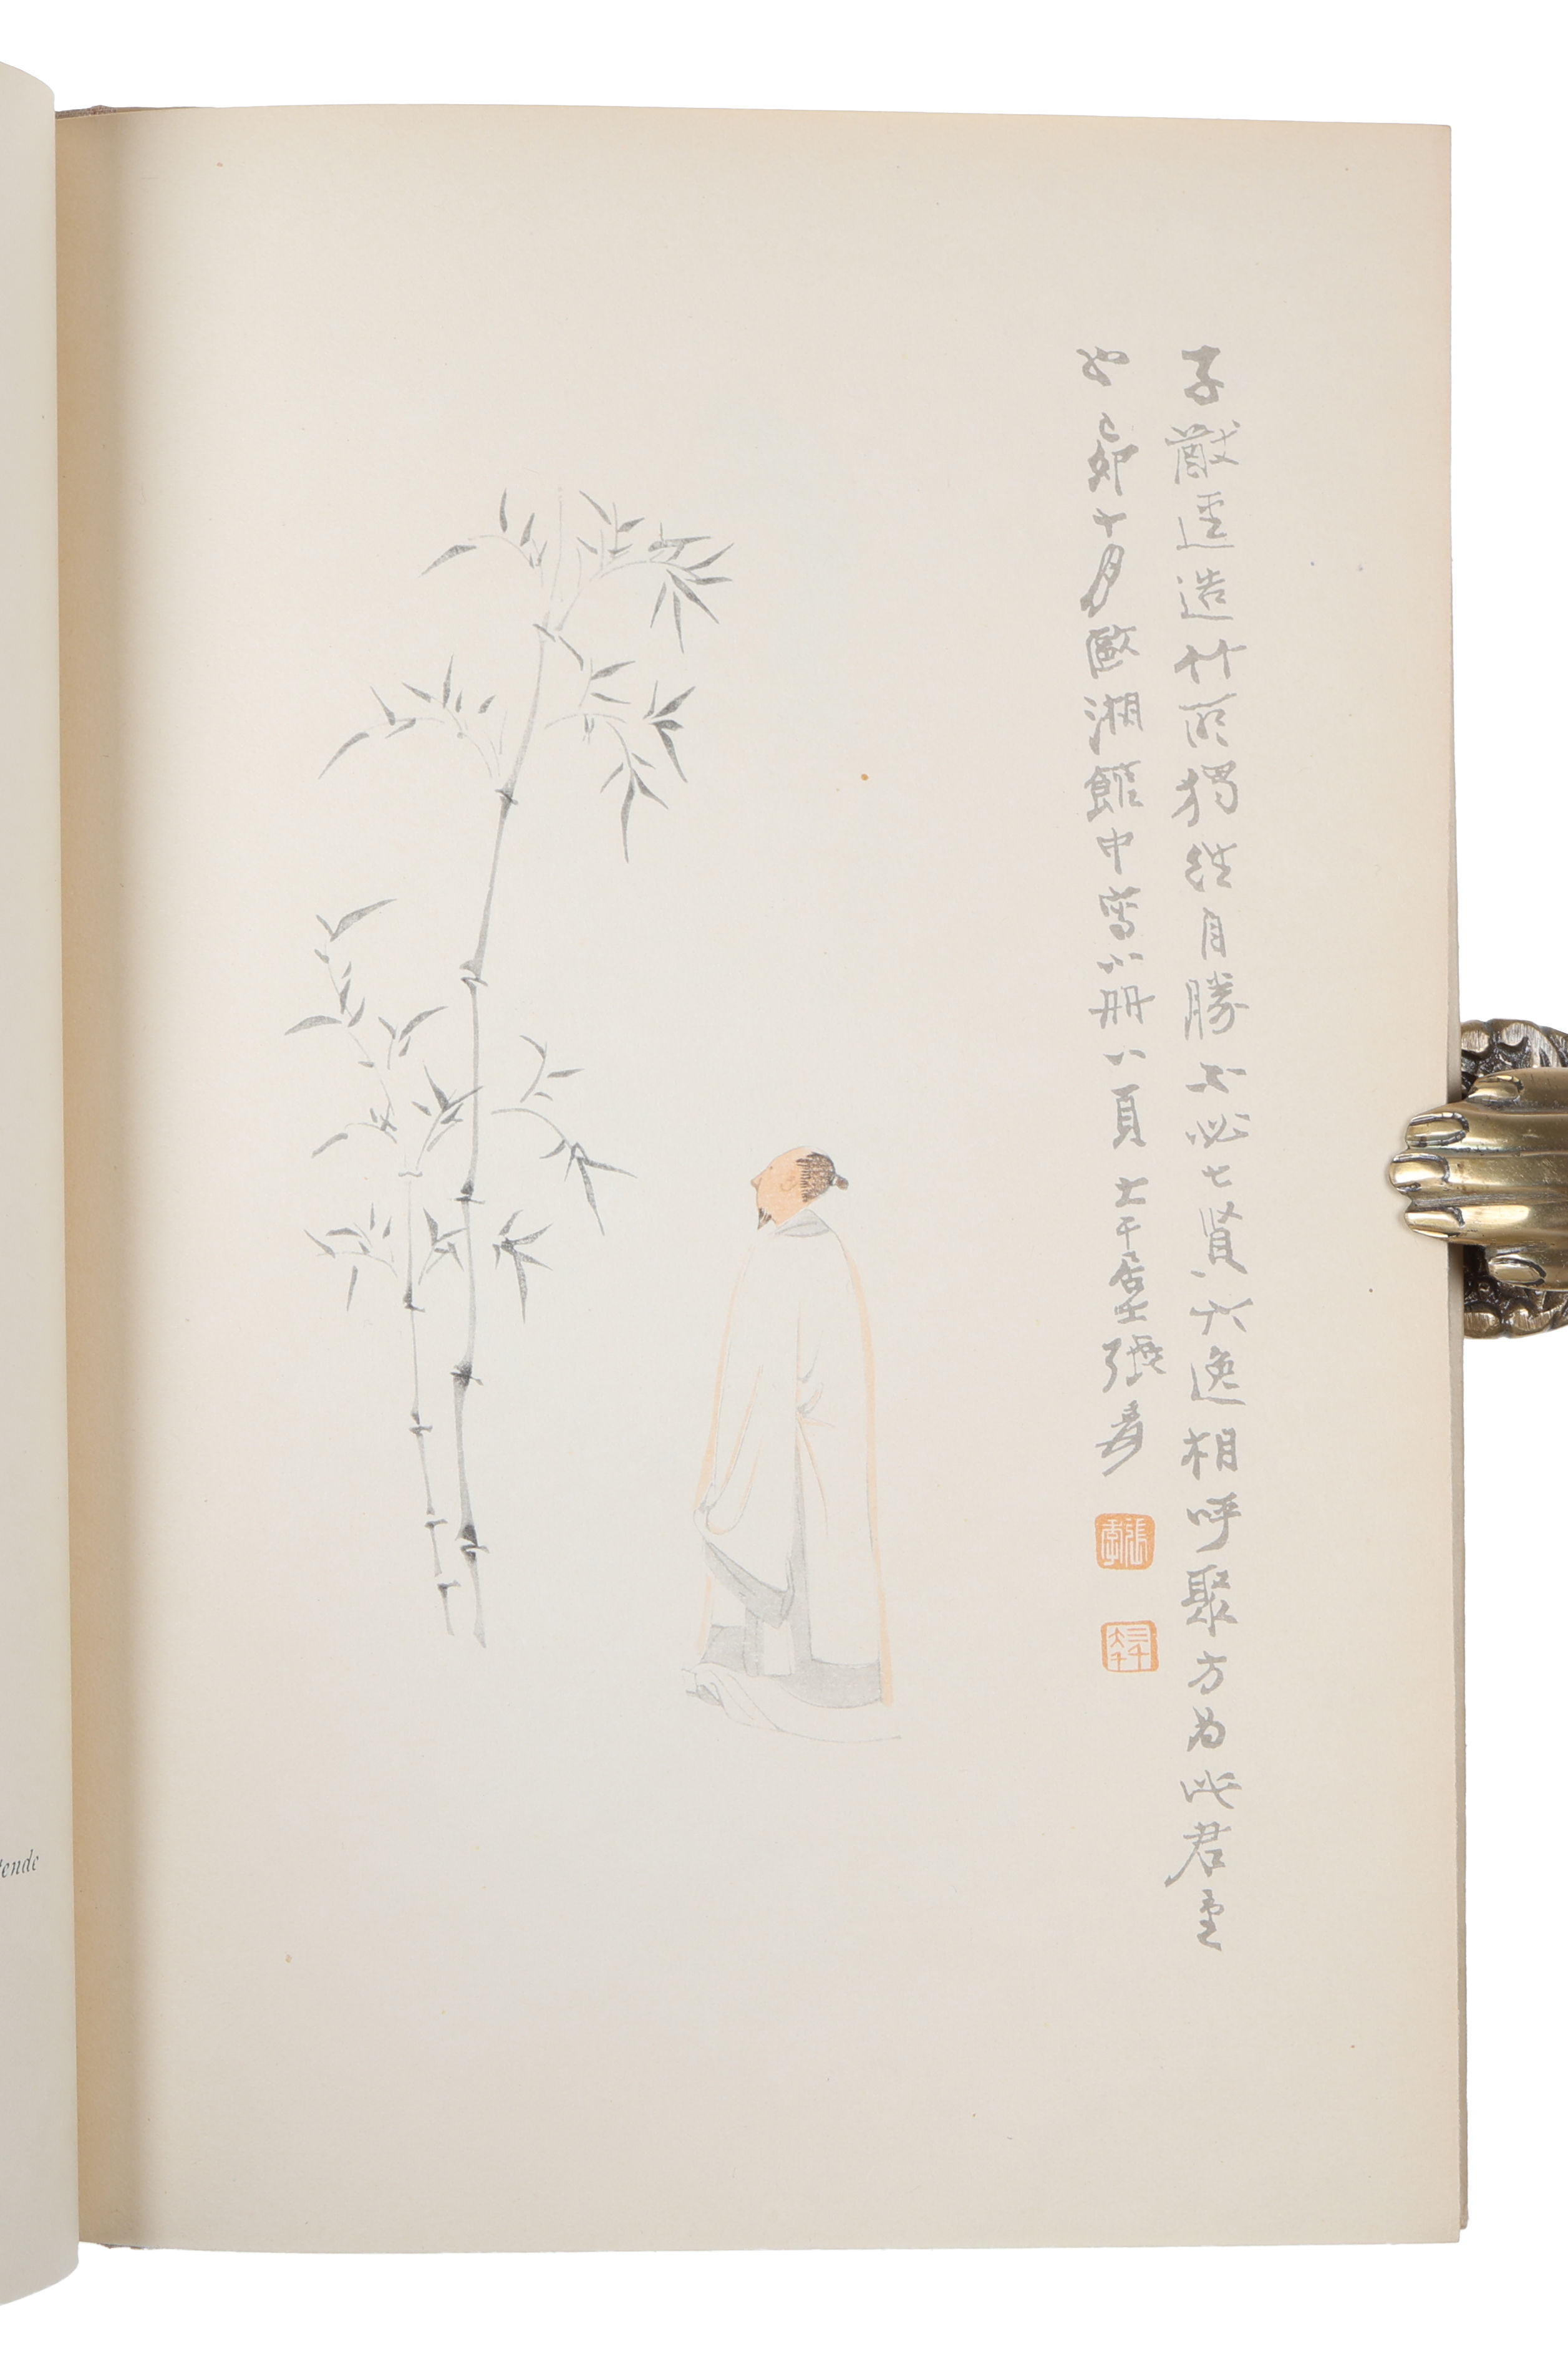 子猷逕造竹所獨往自勝不必七賢六逸相呼聚方為此君重
也己卯十月甌湘館中寫小冊八頁大千居士張爰
張季
三千大千